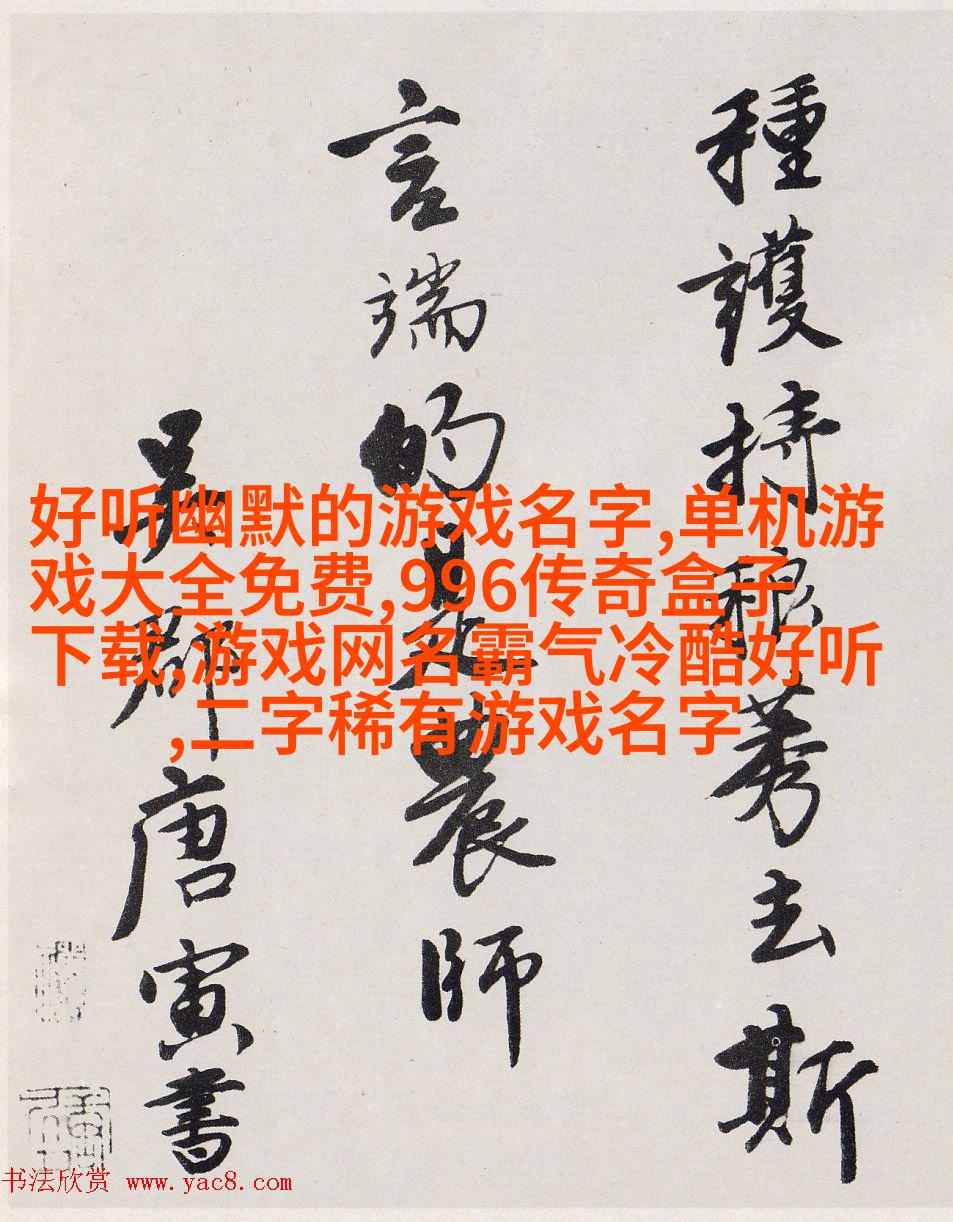 種護持稂莠去斯
言端的是農師
吳郡唐寅書
好听幽默的游戏名字,单机游
戏大全免费,996传奇盒子
下载,游戏网名霸气冷酷好听
,二字稀有游戏名字
书法欣赏 www.yac8.com